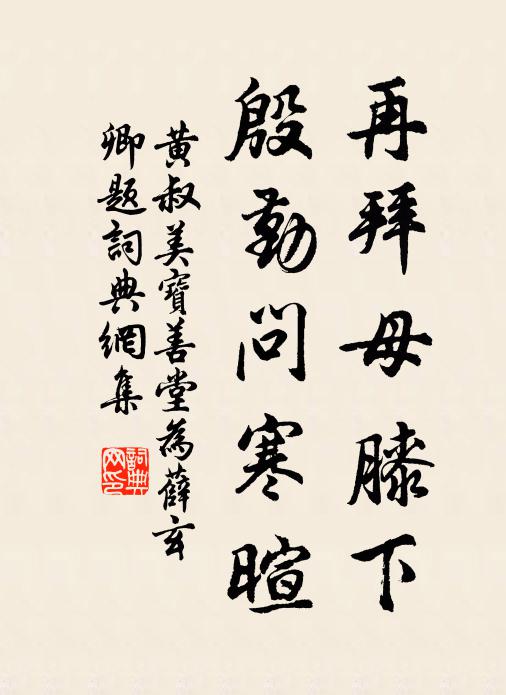 再拜母膝下
殷勤問寒暄
黃叔美寶善堂為薛玄
卿題詞典網集
詞典
网印